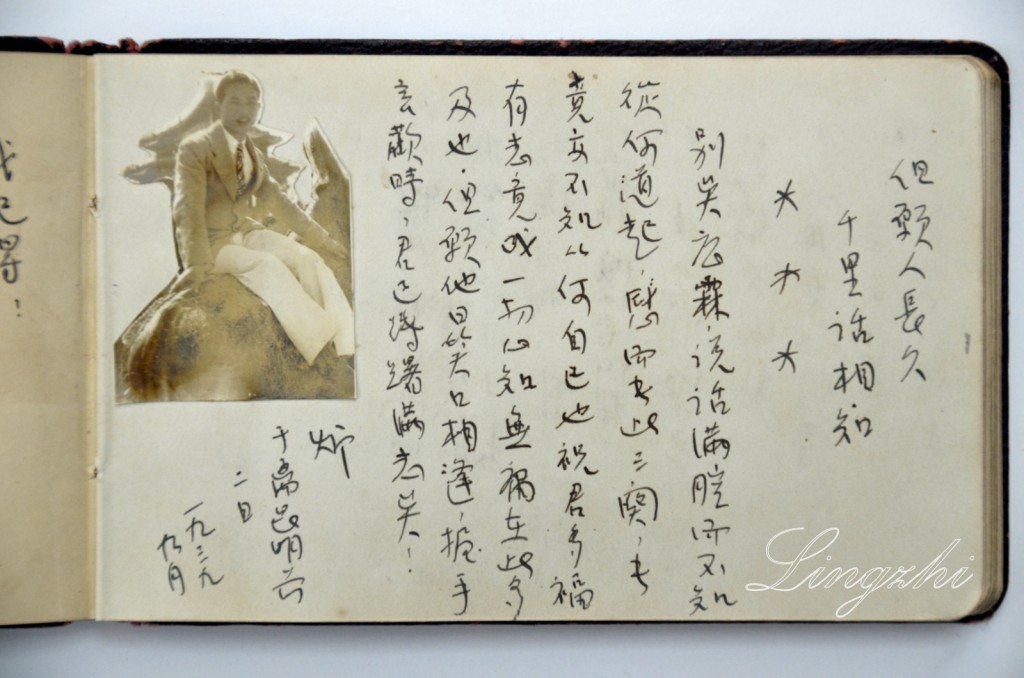 但願人長久
千里話相知
＊＊＊
別矣 霖，说话滿腔而不知
從何道起，而书此三闋，书
竟亦不知從何自己也祝君多福
有志竟成一切心知無禍在此多
及也，但願他日笑口相逢，握手
言歡時，君已躊躇滿志矣！
于離昆明前
二日
一九三九
九月
我 記得！
Lingzhi